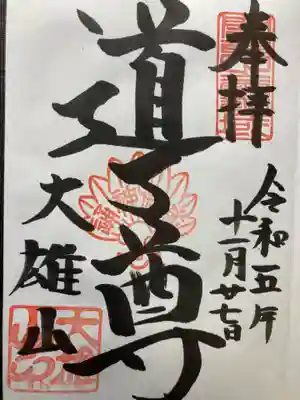 奉拝
令和五年
十一月廿七日
道了尊
大雄山